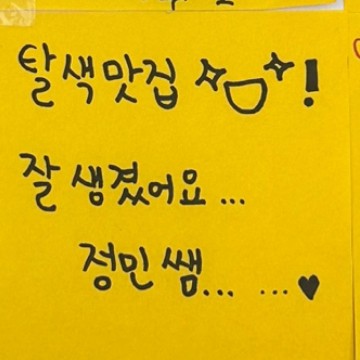 탈색맛집 ✧▽✧!
잘 생겼어요...
정민 쌤... ...♥